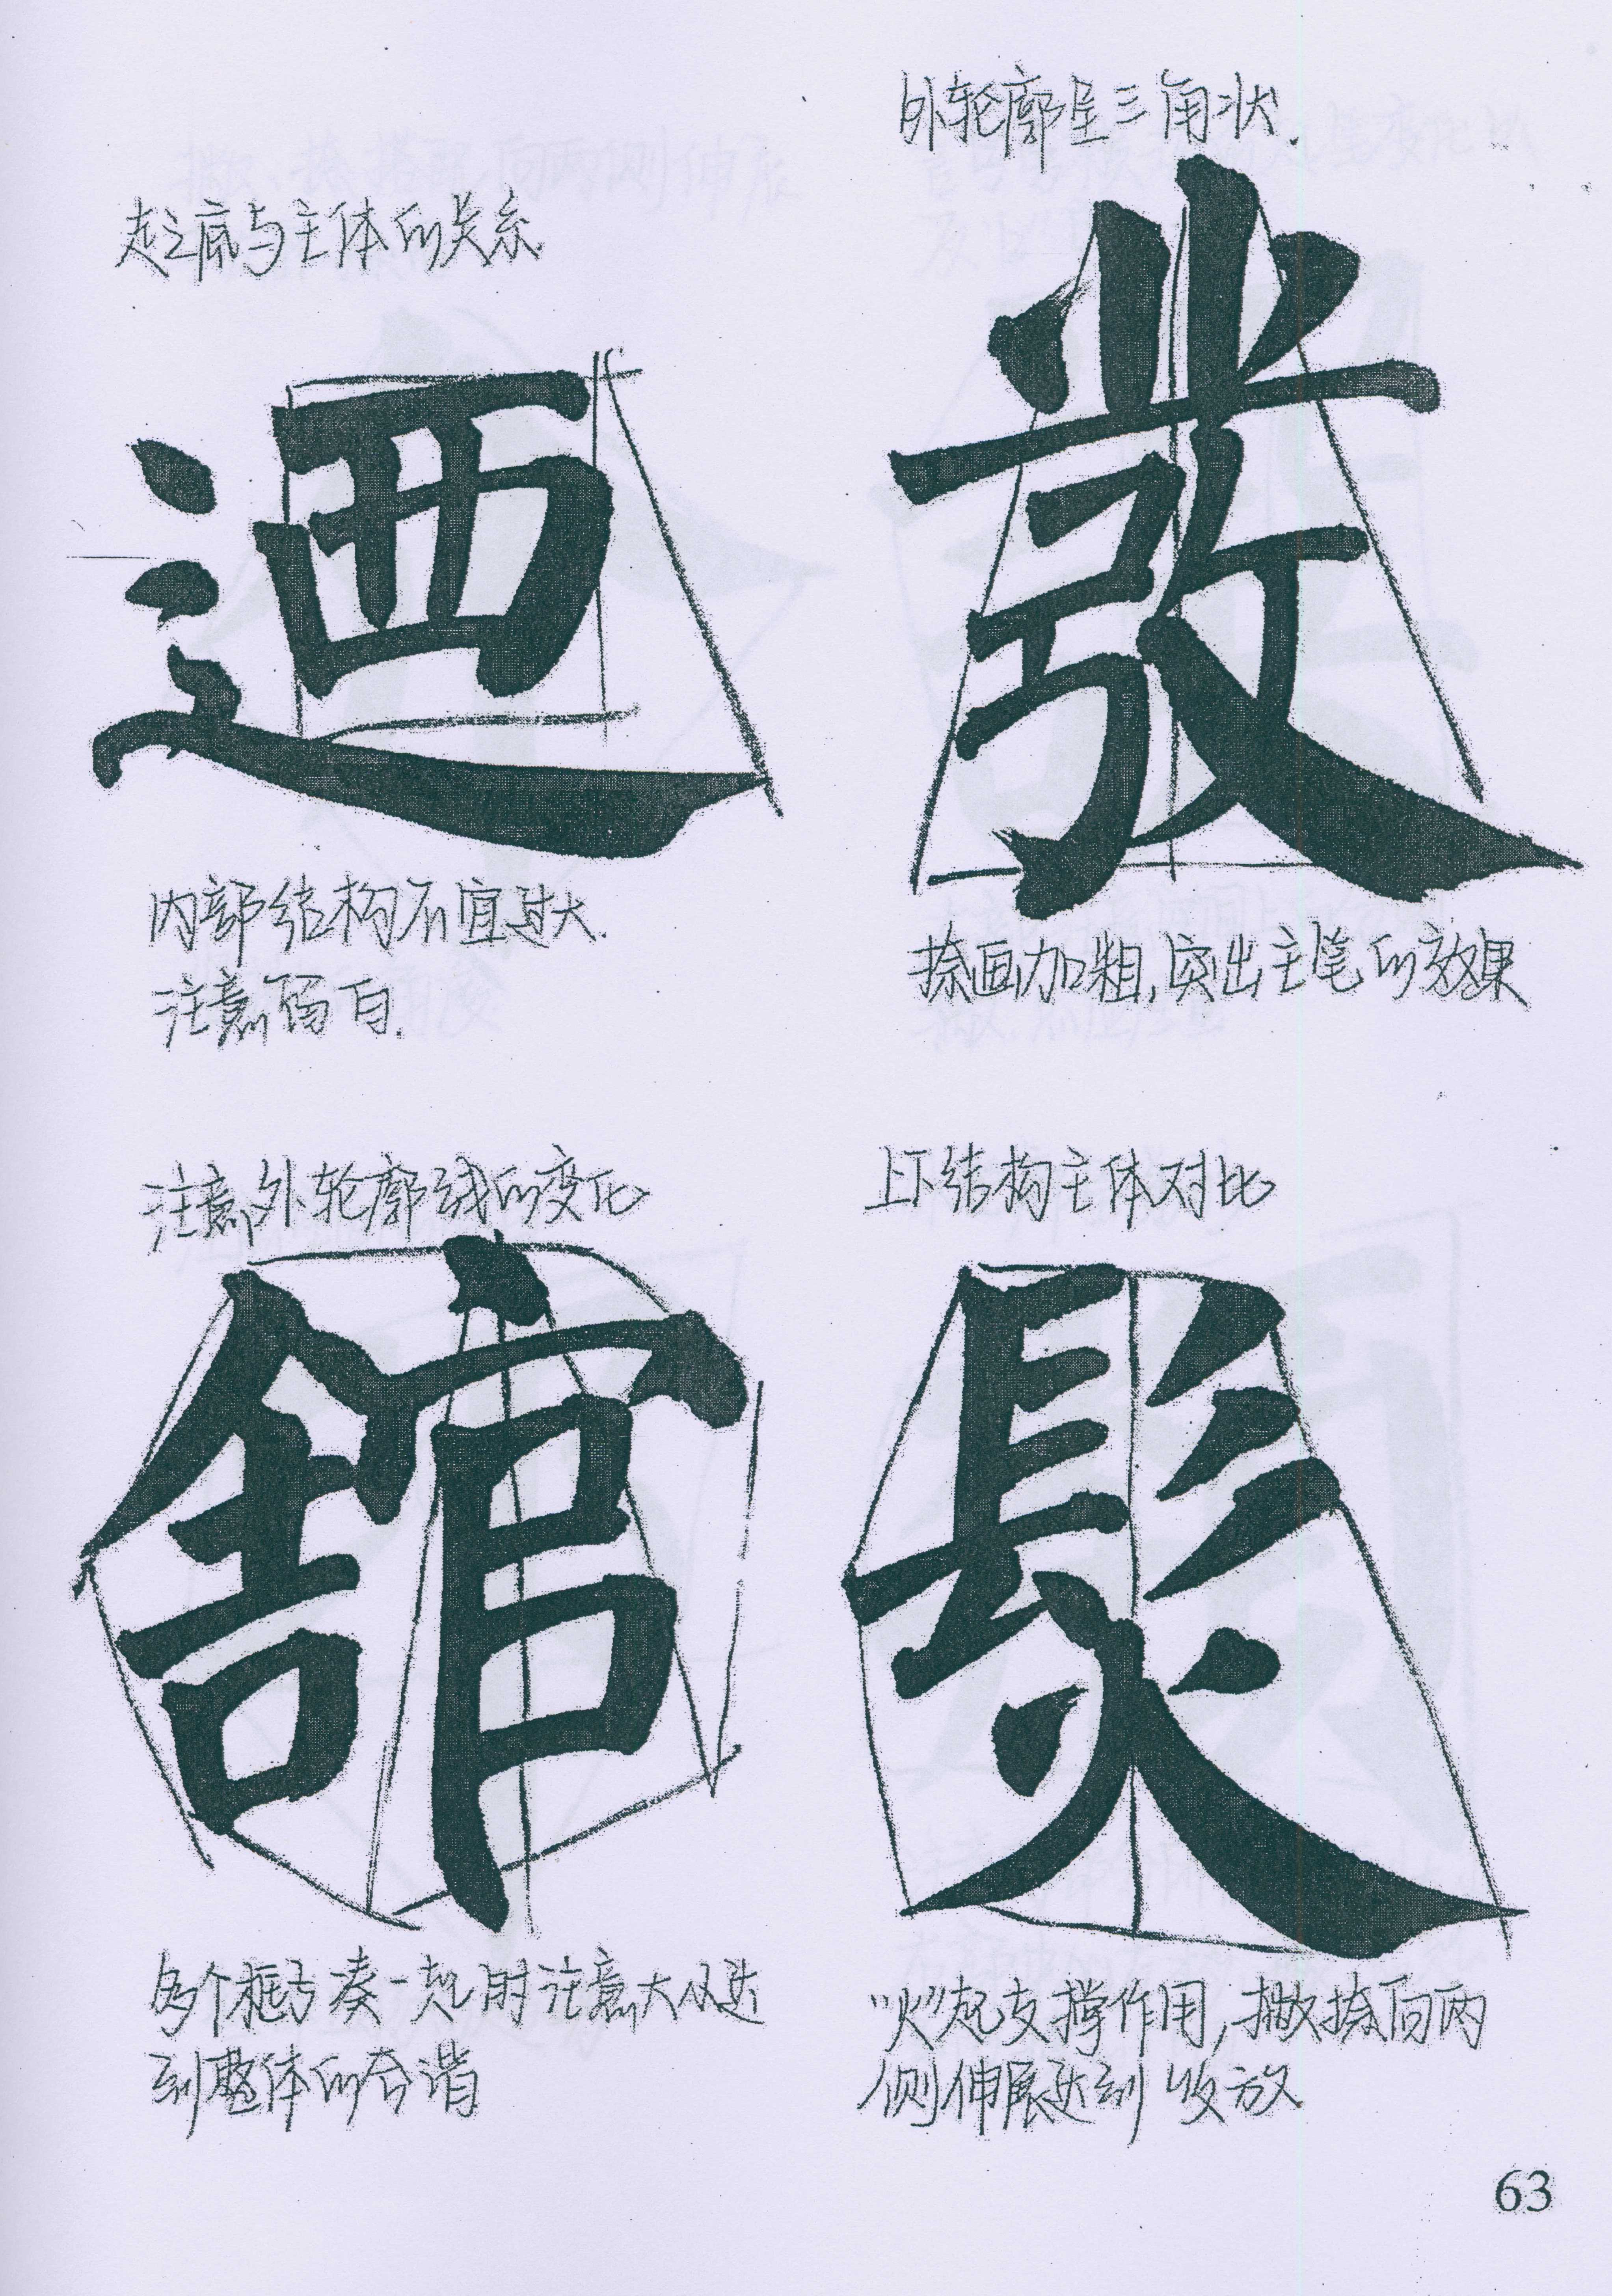 走之底与主体的关系
迺
内部结构不宜过大.
注意留白.
外轮廓呈三角状.
發
捺画加粗,突出主笔的效果
注意外轮廓线的变化
舘
多个框子凑一起时注意大小达
到整体的合谐
上下结构主体对比
"火"起支撑作用,撇捺向两
侧伸展达到收放
63